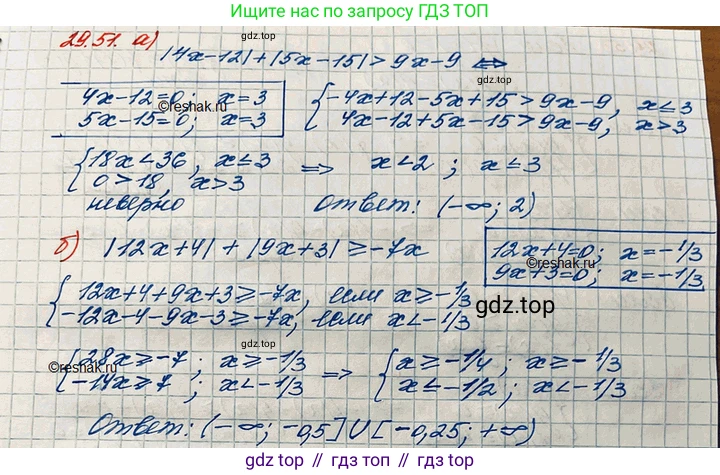 Ищите нас по запросу ГДЗ ТОП
29.51. а) |4x-12|+|5x-15|>9x-9 ⟺
gdz.top
4x-12=0; x=3
5x-15=0; x=3
©reshak.ru
{-4x+12-5x+15>9x-9, x≤3
4x-12+5x-15>9x-9, x>3
{18x<36, x≤3 ⟹ x<2; x≤3
0>18, x>3
неверно Ответ: (-∞; 2)
б) |12x+4|+|9x+3|≥-7x
12x+4=0; x=-1/3
9x+3=0; x=-1/3
©reshak.ru
{12x+4+9x+3≥-7x, если x≥-1/3
-12x-4-9x-3≥-7x, если x<-1/3
gdz.top
{28x≥-7; x≥-1/3 ⟹ {x≥-1/4; x≥-1/3
-14x≥7; x<-1/3 x≤-1/2; x<-1/3
©reshak.ru
Ответ: (-∞; -0,5]∪[-0,25; +∞)
gdz.top // гдз топ // gdz.top // гдз топ